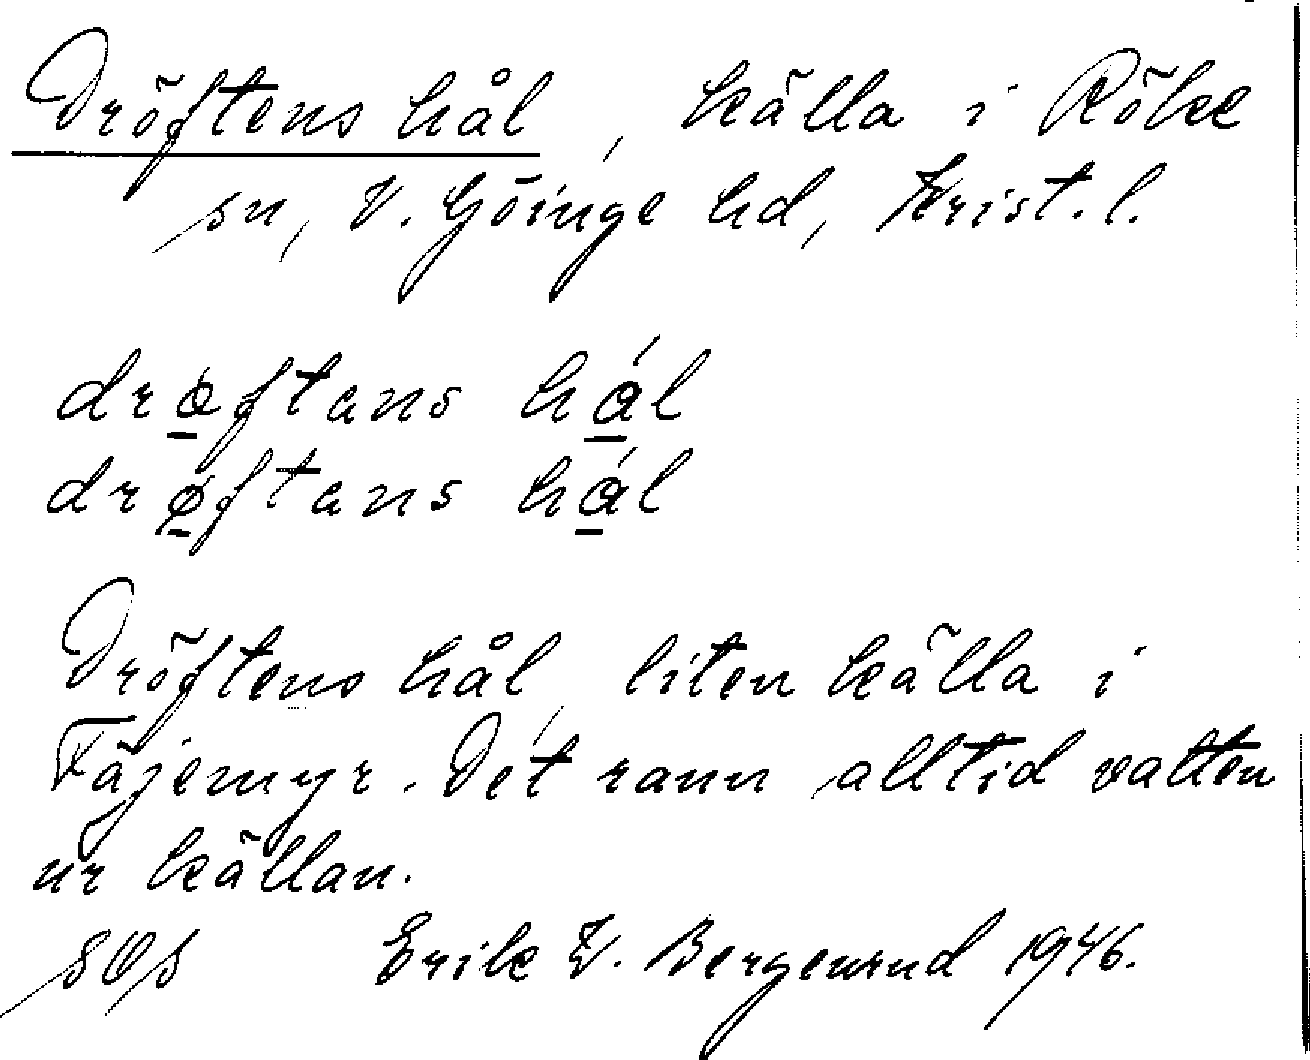 Dröftens hål, källa i Röke
sn, V. Göinge hd, Krist. l.
drøftans hål
drøftans hål
Dröftens hål, liten källa i
Fäjemyr. Det rann alltid vatten
ur källan.
Erik K. Bergenrud 1946.